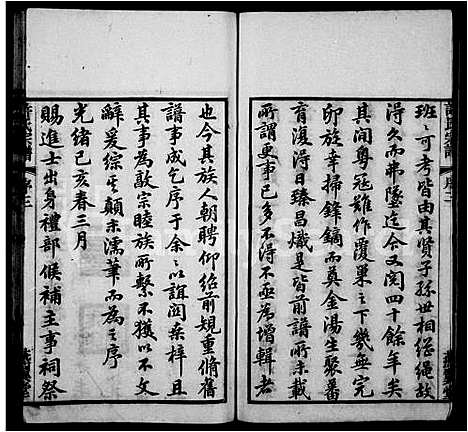 班〻可考皆由其賢子孫世相繼繩故
得久而弗墜迄今又閱四十餘年矣
其間粵冠難作覆巢之下幾無完
卵族幸掃鋒鏑而奠金湯生聚蕃
育復得日臻昌熾是皆前譜所無
所謂更事已多不得不亟為增輯者
也今其族人朝聘仰紹前規重脩舊
譜事成乞序于余〻以誼関桑梓且
其事為敦宗睦族所繫不獲以不文
辭爰綜其顛末濡筆而為之序
光緒己亥春三月
賜進士出身禮部候補主事祠祭
許氏宗譜
序二
序三